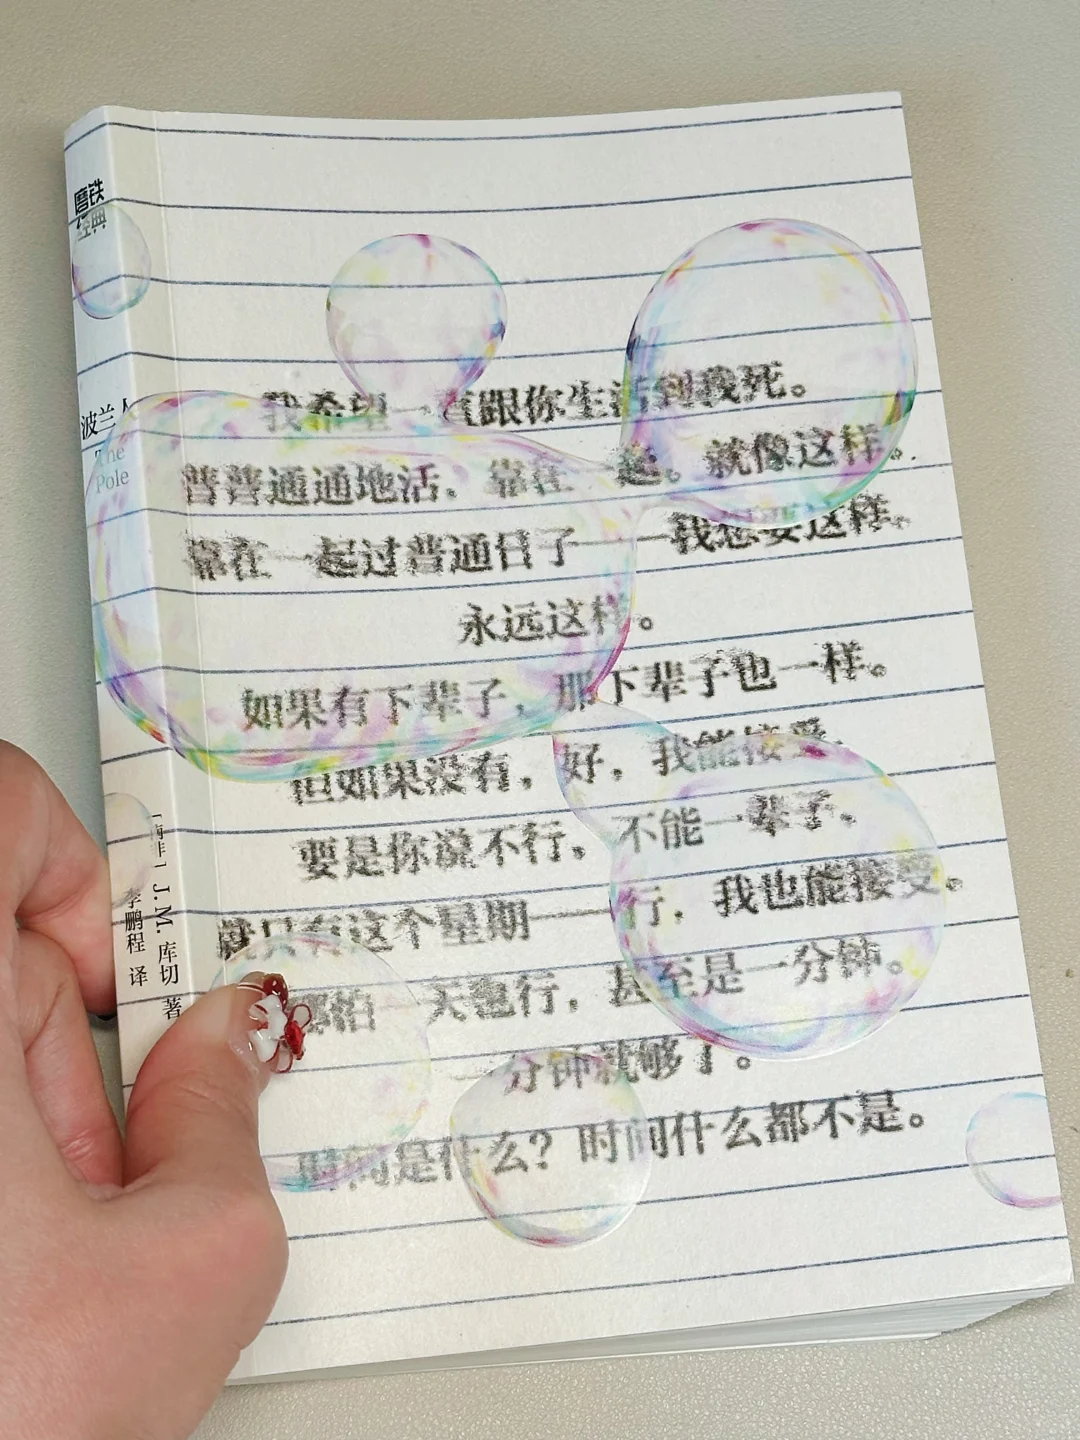 磨铁
经典
波兰人
The
Pole
[南非] J.M. 库切 著
李鹏程 译
我希望一直跟你生活到我死。
普普通通地活，靠在一起。就像这样。
靠在一起过普通日子——我想要这样，
永远这样。
如果有下辈子，那下辈子也一样。
但如果没有，好，我能接受。
要是你说不行，不能一辈子，
就只有这个星期——行，我也能接受。
哪怕一天也行，甚至是一分钟。
一分钟就够了。
时间是什么？时间什么都不是。